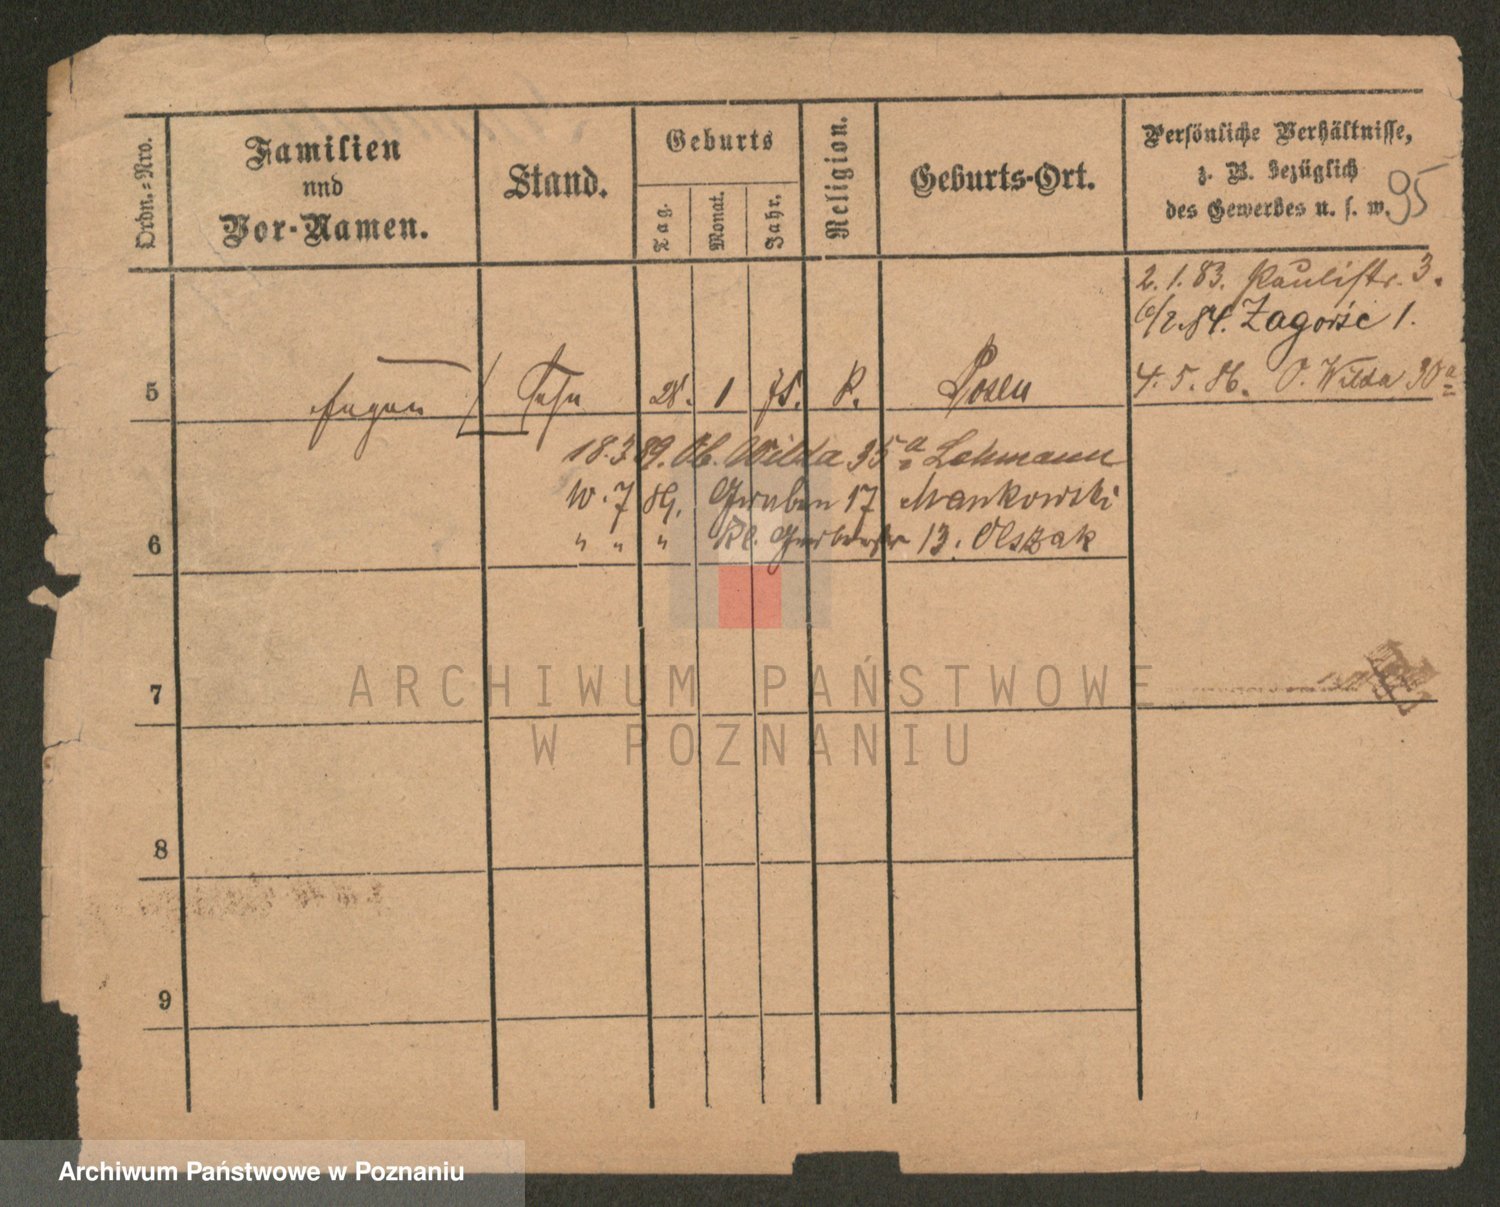 Ordn.-Nro.
Familien
und
Vor-Namen.
Stand.
Geburts
Tag.
Monat.
Jahr.
Religion.
Geburts-Ort.
Persönliche Verhältnisse,
z. B. bezüglich
des Gewerbes u. s. w.
95
2. 1. 83. Paulistr. 3.
6/2. 84. Zagorze 1.
4. 5. 86. O. Wilda 30 a
5
Eugen
Sohn
28. 1 75. K. Posen
18. 3 89. Ob. Wilda 35 a Lehmann
10. 7 89. Graben 17 Mankowski
6
" " " Kl. Gerberstr 13. Olszak
7
8
9
ARCHIWUM PAŃSTWOWE
W POZNANIU
Archiwum Państwowe w Poznaniu